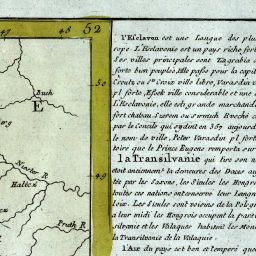 52
Buch
E
Niester R
Halicz
49
Pruth R
48
l'Esclavon est une Langue des plus
rope L'Esclavonie est un païs riche fert
Ses villes principales sont Zagrabia
forte bien peuplée, Elle passe pour la capit
Creutz ou Ste Croix ville libre, Varasdin v
pl forte, Essek ville considerable et une
L'Esclavonie, elle est grande marchande
fort chateau Sirem ou Sirmich Eveché c
par le Concile qui s'y tint en 357 aujourd
le nom de ville, Peter Varadin pl fort
toire que le Prince Eugene remporta sur
la Transilvanie qui tire son n
étoit anciennemt la demeure des Daces auj
tée par les Saxons, les Sicules les Hongrois
toutes ces nations conservent leur Langue
loix. Les Sicules sont voisins de la Pologne
a leur midi les Hongrois occupent la part
silvanie et les Valaques habitent les Mont
la Transilvanie de la Valaquie.
L'Air du païs est bon et temperé quo